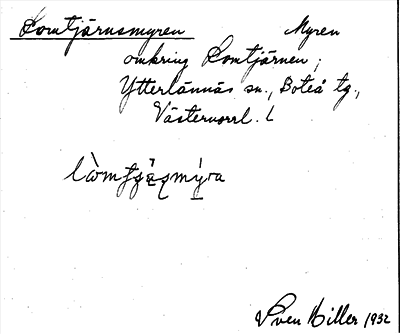 Lomtjärnsmyren Myren
omkring Lomtjärnen;
Ytterlännäs sn., Boteå tg.,
Västernorrl. l
Sven Hiller 1932